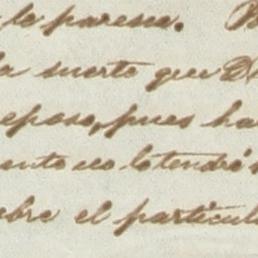 le parece.
la suerte que D
eposo, pues ha
ento no lo tendrá
obre el particul